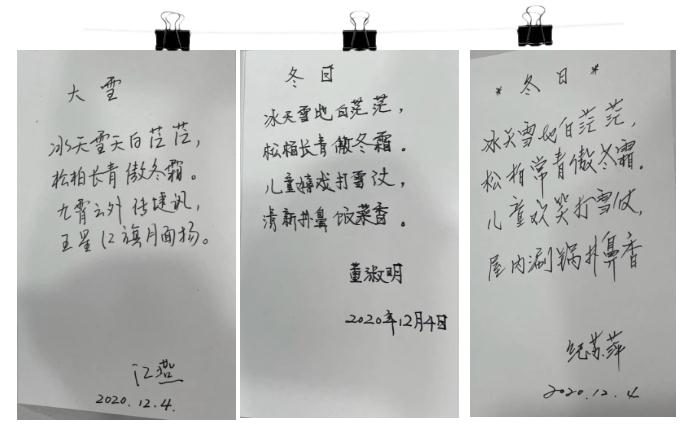 大雪
冰天雪天白茫茫，
松柏长青傲冬霜。
九霄云外传捷讯，
五星红旗月面扬。
江燕
2020.12.4.
冬日
冰天雪地白茫茫，
松柏长青傲冬霜。
儿童嬉戏打雪仗，
清新扑鼻饭菜香。
董淑明
2020年12月4日
* 冬日 *
冰天雪地白茫茫，
松柏常青傲冬霜.
儿童欢笑打雪仗，
屋内涮锅扑鼻香
纪苏萍
2020.12.4